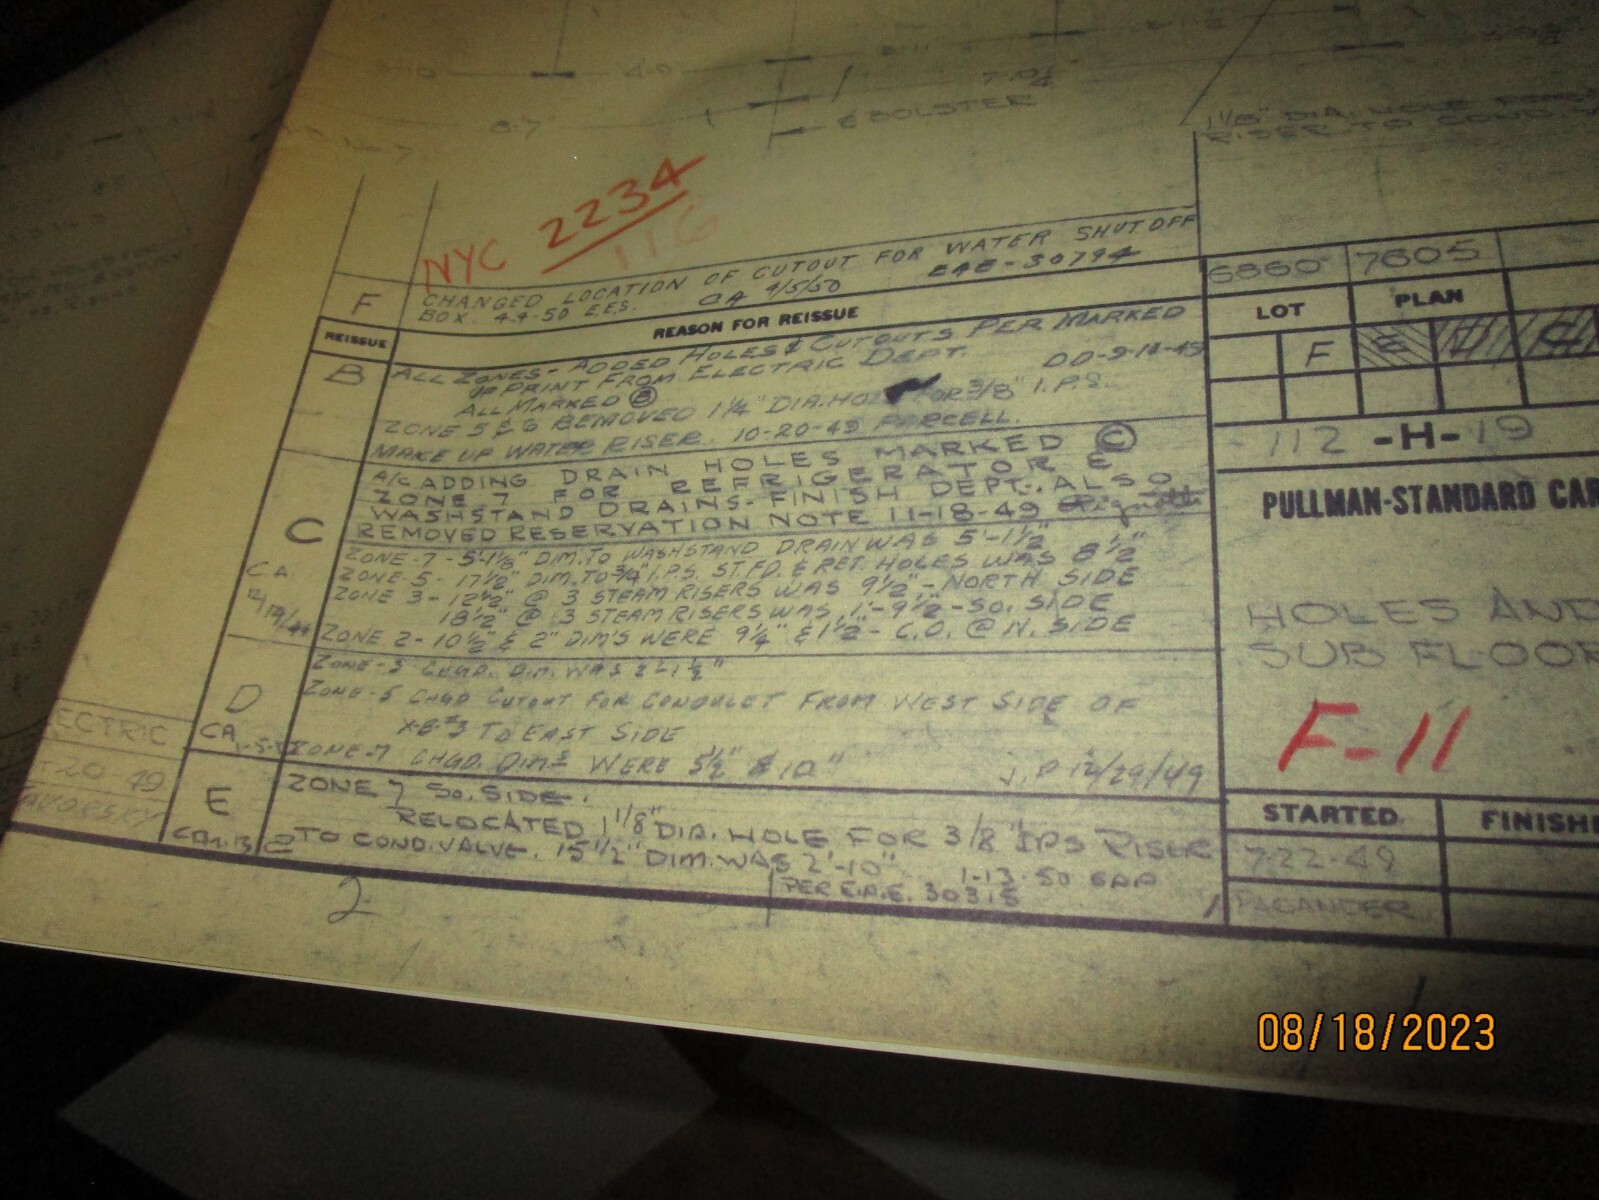 4-0
7-10¼
8-7"
℄ BOLSTER
1 1/8" DIA. HOLE FOR
RISER TO COND.
NYC 2234
116
F CHANGED LOCATION OF CUTOUT FOR WATER SHUTOFF
BOX. 4-4-50 EES. CA 4/5/50 EAE-30794
REISSUE REASON FOR REISSUE
B ALL ZONES - ADDED HOLES & CUTOUTS PER MARKED
UP PRINT FROM ELECTRIC DEPT.
ALL MARKED Ⓑ
ZONE 5 & 6 REMOVED 1¼" DIA. FOR 3/8" I.P.S.
MAKE UP WATER RISER. 10-20-49 PURCELL.
C A/C ADDING DRAIN HOLES MARKED Ⓒ
ZONE 7 FOR REFRIGERATOR &
WASHSTAND DRAINS-FINISH DEPT. ALSO
REMOVED RESERVATION NOTE 11-18-49
ZONE-7-5'-1⅛" DIM. TO WASHSTAND DRAIN WAS 5'-1½"
ZONE-5-17½" DIM. TO ¾" I.P.S. ST. FD. & RET. HOLES WAS 8½"
ZONE 3-12½" @ 3 STEAM RISERS WAS 9½"-NORTH SIDE
18½" @ 3 STEAM RISERS WAS 1'-9½-SO. SIDE
ZONE 2-10½" & 2" DIM'S WERE 9¼" & 1½"-C.O. @ N. SIDE
C.A.
D ZONE-3 CHGD. DIM. WAS
ZONE-5 CHGD CUTOUT FOR CONDULET FROM WEST SIDE OF
X-B-#3 TO EAST SIDE
CA ZONE-7 CHGD. DIMS WERE 5½" & 10" J.P 12/29/49
E ZONE 7 SO. SIDE.
RELOCATED 1 1/8" DIA. HOLE FOR 3/8" IPS RISER
TO COND. VALVE. 15½" DIM. WAS 2'-10" 1-13-50
PER E.A.E. 30315
ECTRIC
20-49
2
6860 7605
LOT PLAN
F E D C
112 -H- 19
PULLMAN-STANDARD CAR
HOLES AND
SUB FLOOR
F-11
STARTED FINISHE
7-22-49
08/18/2023